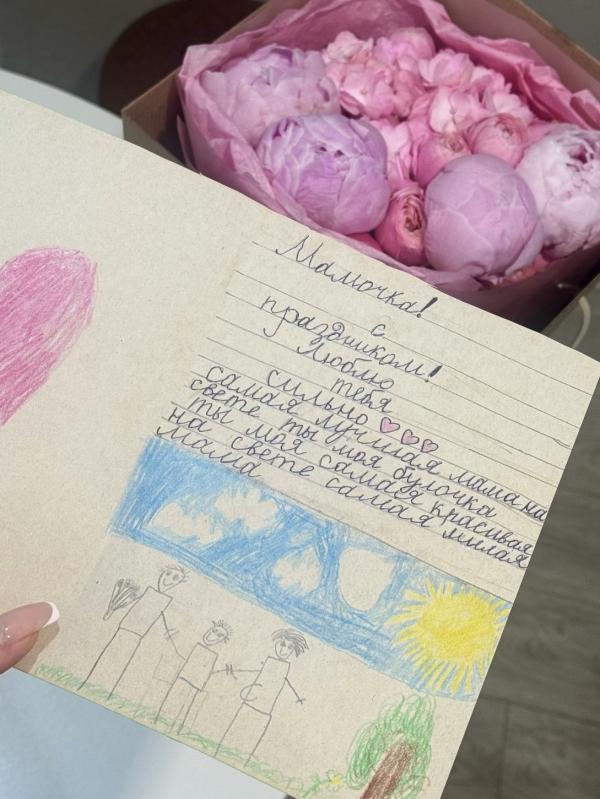 Мамочка!
с
праздником!
Люблю
тебя
сильно
самая лучшая мама на
свете ты моя булочка
ты моя самая красивая
на свете самая милая
мама